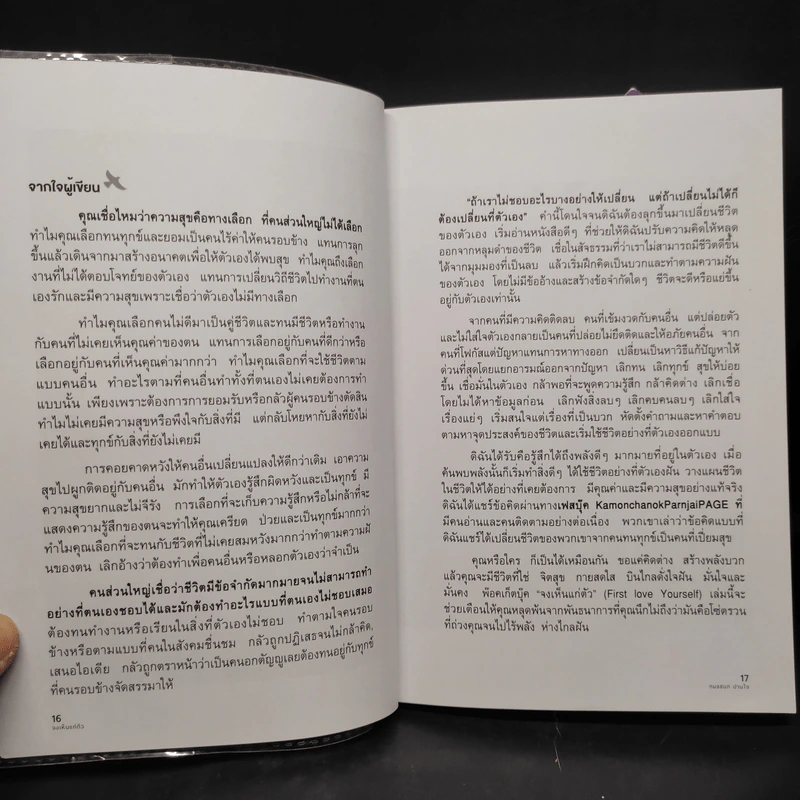 จากใจผู้เขียน
คุณเชื่อไหมว่าความสุขคือทางเลือก ที่คนส่วนใหญ่ไม่ได้เลือก
ทำไมคุณเลือกทนทุกข์และยอมเป็นคนไร้ค่าให้คนรอบข้าง แทนการลุก
ขึ้นแล้วเดินจากมาสร้างอนาคตเพื่อให้ตัวเองได้พบสุข ทำไมคุณถึงเลือก
งานที่ไม่ได้ตอบโจทย์ของตัวเอง แทนการเปลี่ยนวิถีชีวิตไปทำงานที่ตน
เองรักและมีความสุขเพราะเชื่อว่าตัวเองไม่มีทางเลือก
ทำไมคุณเลือกคนไม่ดีมาเป็นคู่ชีวิตและทนมีชีวิตหรือทำงาน
กับคนที่ไม่เคยเห็นคุณค่าของตน แทนการเลือกอยู่กับคนที่ดีกว่าหรือ
เลือกอยู่กับคนที่เห็นคุณค่ามากกว่า ทำไมคุณเลือกที่จะใช้ชีวิตตาม
แบบคนอื่น ทำอะไรตามที่คนอื่นทำทั้งที่ตนเองไม่เคยต้องการทำ
แบบนั้น เพียงเพราะต้องการการยอมรับหรือกลัวผู้คนรอบข้างตัดสิน
ทำไมไม่เคยมีความสุขหรือพึงใจกับสิ่งที่มี แต่กลับโหยหากับสิ่งที่ยังไม่
เคยได้และทุกข์กับสิ่งที่ยังไม่เคยมี
การคอยคาดหวังให้คนอื่นเปลี่ยนแปลงให้ดีกว่าเดิม เอาความ
สุขไปผูกติดอยู่กับคนอื่น มักทำให้ตัวเองรู้สึกผิดหวังและเป็นทุกข์ มี
ความสุขยากและไม่จีรัง การเลือกที่จะเก็บความรู้สึกหรือไม่กล้าที่จะ
แสดงความรู้สึกของตนจะทำให้คุณเครียด ป่วยและเป็นทุกข์มากกว่า
ทำไมคุณเลือกที่จะทนกับชีวิตที่ไม่เคยสมหวังมากกว่าทำตามความฝั
นของตน เลิกอ้างว่าต้องทำเพื่อคนอื่นหรือหลอกตัวเองว่าจำเป็น
คนส่วนใหญ่เชื่อว่าชีวิตมีข้อจำกัดมากมายจนไม่สามารถทำ
อย่างที่ตนเองชอบได้และมักต้องทำอะไรแบบที่ตนเองไม่ชอบเสมอ
ต้องทนทำงานหรือเรียนในสิ่งที่ตัวเองไม่ชอบ ทำตามใจคนรอบ
ข้างหรือตามแบบที่คนในสังคมชื่นชม กลัวถูกปฏิเสธจนไม่กล้าคิด,
เสนอไอเดีย กลัวถูกตราหน้าว่าเป็นคนอกตัญญูเลยต้องทนอยู่กับทุกข์
ที่คนรอบข้างจัดสรรมาให้
16
จงเห็นแก่ตัว
"ถ้าเราไม่ชอบอะไรบางอย่างให้เปลี่ยน แต่ถ้าเปลี่ยนไม่ได้ก็
ต้องเปลี่ยนที่ตัวเอง" คำนี้โดนใจจนดิฉันต้องลุกขึ้นมาเปลี่ยนชีวิต
ของตัวเอง เริ่มอ่านหนังสือดีๆ ที่ช่วยให้ดิฉันปรับความคิดให้หลุด
ออกจากหลุมดำของชีวิต เชื่อในสัจธรรมที่ว่าเราไม่สามารถมีชีวิตดีขึ้น
ได้จากมุมมองที่เป็นลบ แล้วเริ่มฝึกคิดเป็นบวกและทำตามความฝัน
ของตัวเอง โดยไม่มีข้ออ้างและสร้างข้อจำกัดใดๆ ชีวิตจะดีหรือแย่ขึ้น
อยู่กับตัวเองเท่านั้น
จากคนที่มีความคิดติดลบ คนที่เข้มงวดกับคนอื่น แต่ปล่อยตัว
และไม่ใส่ใจตัวเองกลายเป็นคนที่ปล่อยไม่ยึดติดและให้อภัยคนอื่น จาก
คนที่โฟกัสแต่ปัญหาแทนการหาทางออก เปลี่ยนเป็นหาวิธีแก้ปัญหาให้
ด่วนที่สุดโดยแยกอารมณ์ออกจากปัญหา เลิกทน เลิกทุกข์ สุขให้บ่อย
ขึ้น เชื่อมั่นในตัวเอง กล้าพอที่จะพูดความรู้สึก กล้าคิดต่าง เลิกเชื่อ
โดยไม่ได้หาข้อมูลก่อน เลิกฟังสิ่งลบๆ เลิกคบคนลบๆ เลิกใส่ใจ
เรื่องแย่ๆ เริ่มสนใจแต่เรื่องที่เป็นบวก หัดตั้งคำถามและหาคำตอบ
ตามหาจุดประสงค์ของชีวิตและเริ่มใช้ชีวิตอย่างที่ตัวเองออกแบบ
ดิฉันได้รับคือรู้สึกได้ถึงพลังดีๆ มากมายที่อยู่ในตัวเอง เมื่อ
ค้นพบพลังนั้นก็เริ่มทำสิ่งดีๆ ได้ใช้ชีวิตอย่างที่ตัวเองฝัน วางแผนชีวิต
ในชีวิตให้ได้อย่างที่เคยต้องการ มีคุณค่าและมีความสุขอย่างแท้จริง
ดิฉันได้แชร์ข้อคิดผ่านทางเฟสบุ๊ค KamonchanokParnjaiPAGE ที่
มีคนอ่านและคนติดตามอย่างต่อเนื่อง พวกเขาเล่าว่าข้อคิดแบบที่
ดิฉันแชร์ได้เปลี่ยนชีวิตของพวกเขาจากคนทนทุกข์เป็นคนที่เปี่ยมสุข
คุณหรือใคร ก็เป็นได้เหมือนกัน ขอแค่คิดต่าง สร้างพลังบวก
แล้วคุณจะมีชีวิตที่ใช่ จิตสุข กายสดใส บินไกลดั่งใจฝัน มั่นใจและ
มั่นคง พ็อคเก็ตบุ๊ค "จงเห็นแก่ตัว" (First love Yourself) เล่มนี้จะ
ช่วยเตือนให้คุณหลุดพ้นจากพันธนาการที่คุณนึกไม่ถึงว่ามันคือโซ่ตรวน
ที่ถ่วงคุณจนไปไร้พลัง ห่างไกลฝัน
17
กมลชนก ปานใจ